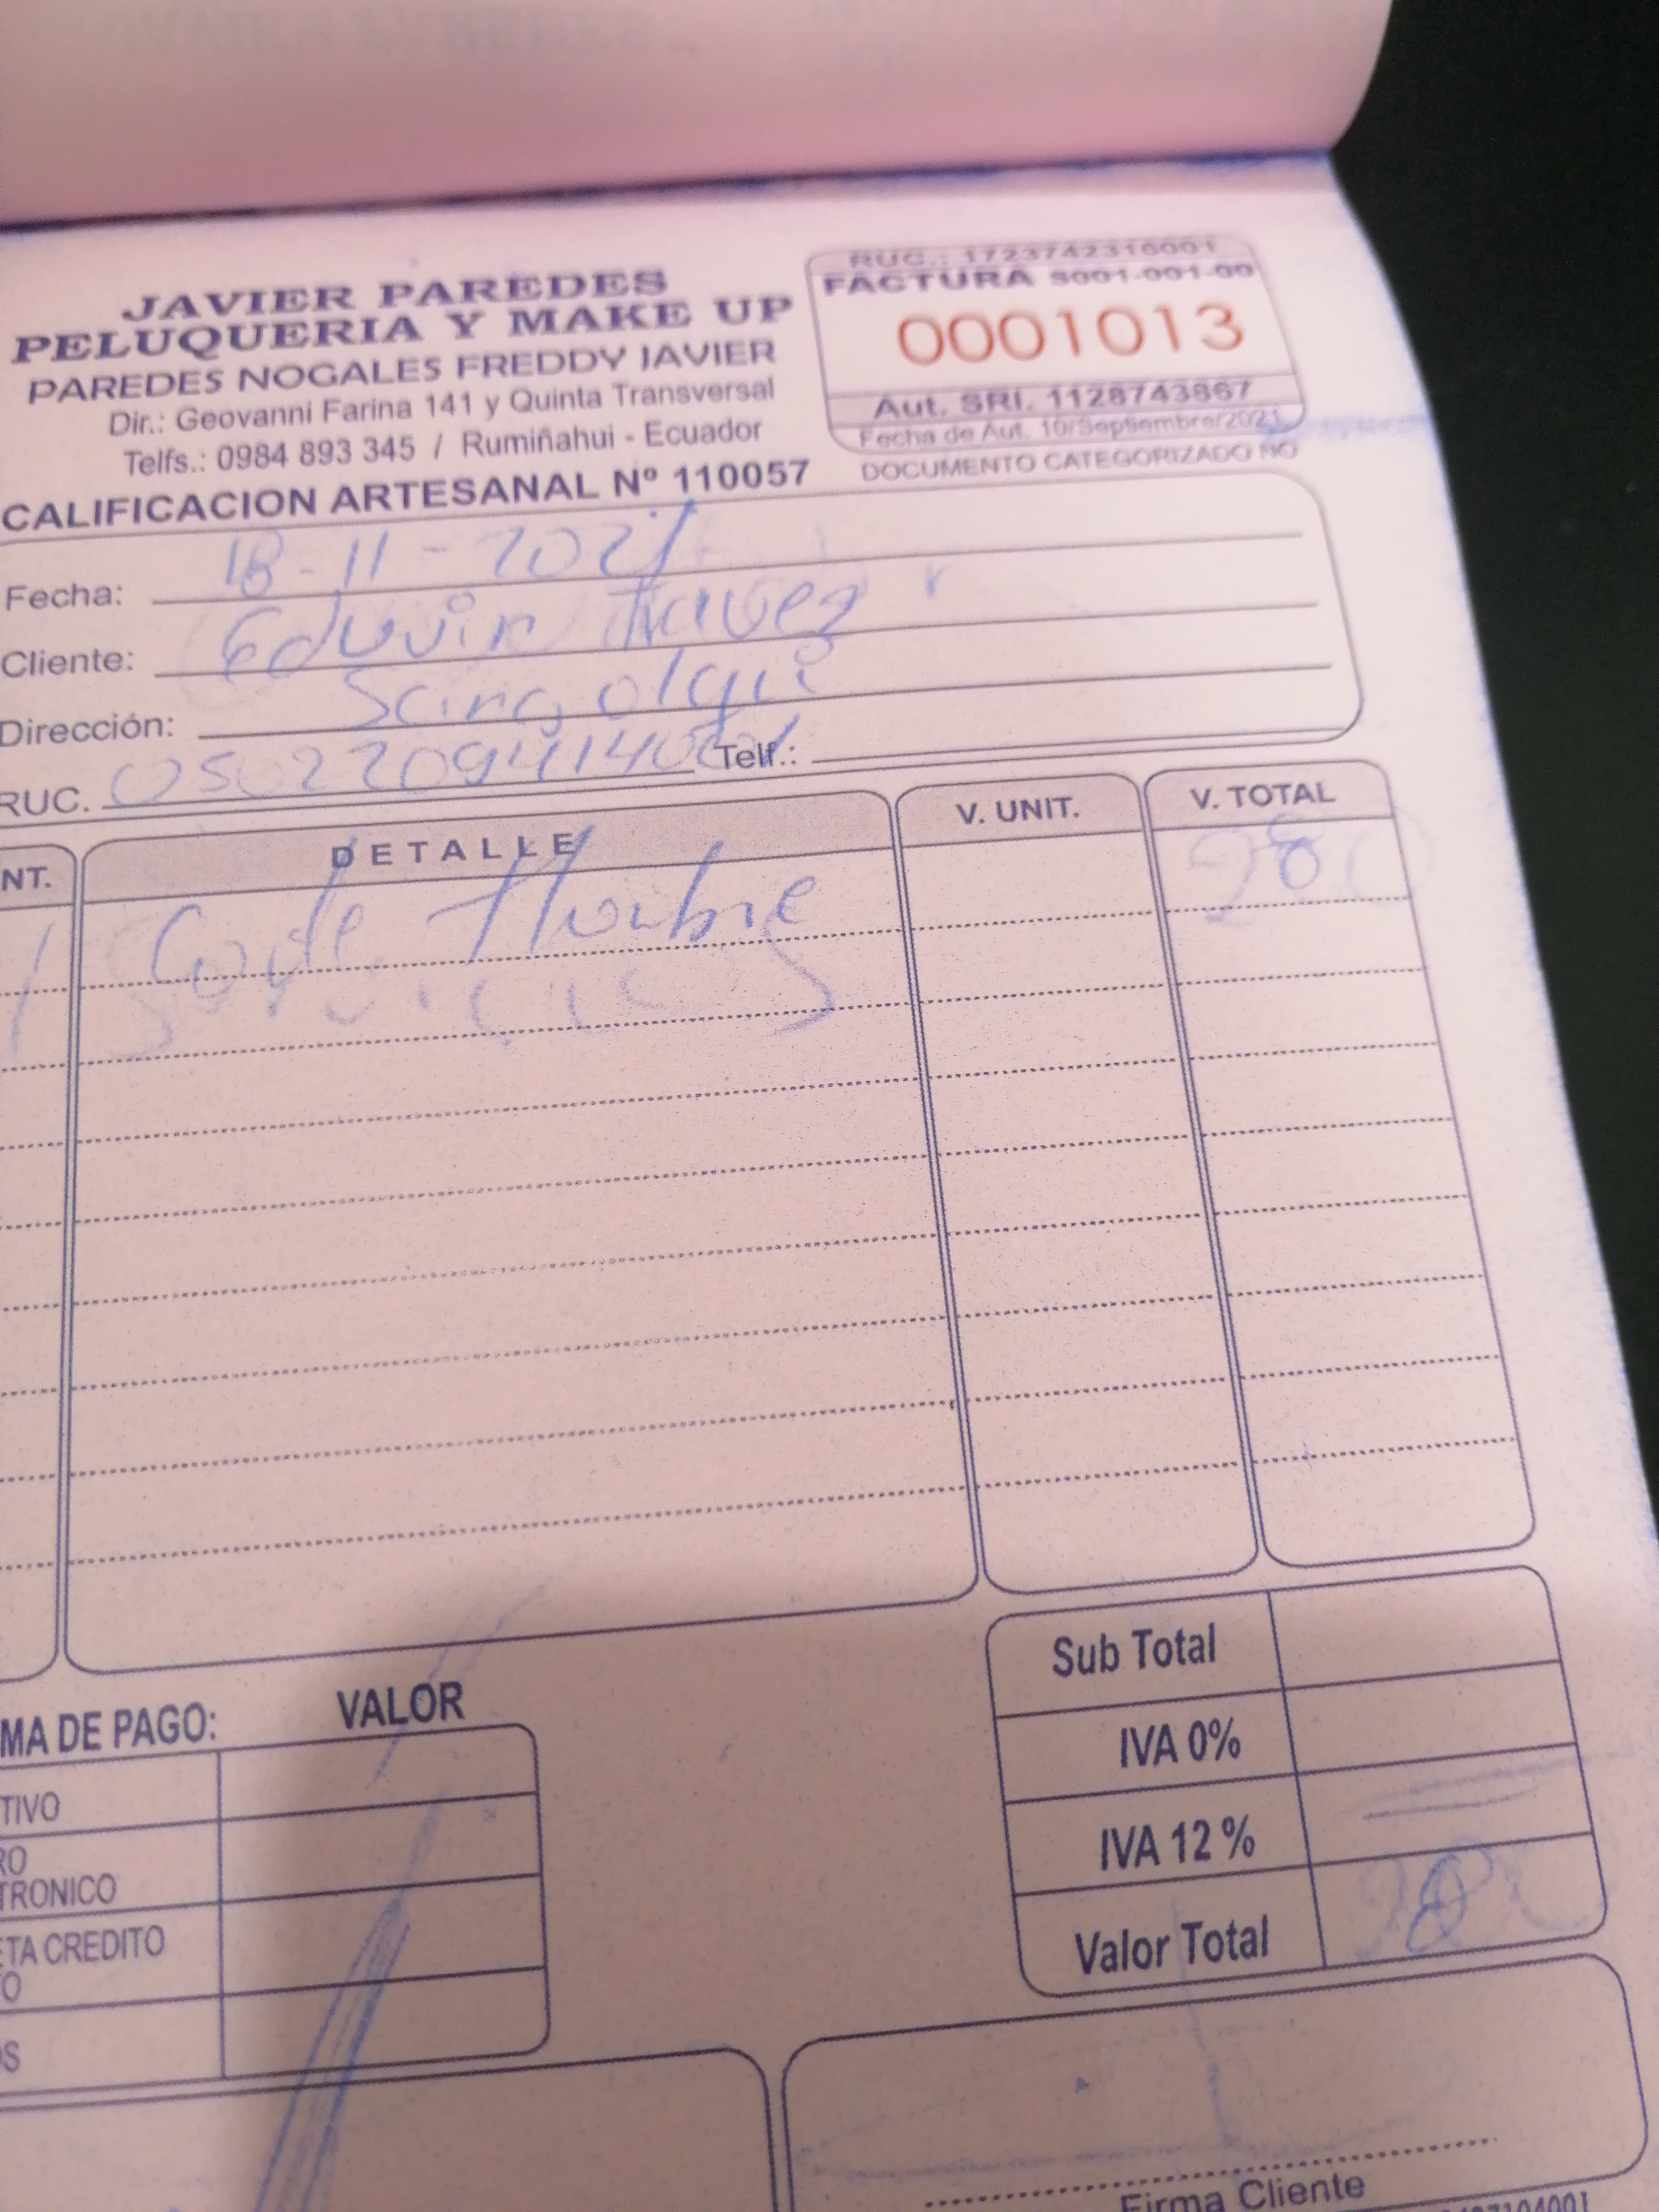 JAVIER PAREDES
PELUQUERIA Y MAKE UP
PAREDES NOGALES FREDDY JAVIER
Dir.: Geovanni Farina 141 y Quinta Transversal
Telfs.: 0984 893 345 / Rumiñahui - Ecuador
CALIFICACION ARTESANAL Nº 110057
RUC.: 1723742316001
FACTURA S001-001-00
0001013
Aut. SRI. 1128743867
Fecha de Aut. 10/Septiembre/2021
DOCUMENTO CATEGORIZADO NO
Fecha: 18-11-2021
Cliente: Eduvin
Dirección: Sangolqui
RUC. Telf.:
NT. DETALLE V. UNIT. V. TOTAL
1 Corte
MA DE PAGO: VALOR
TIVO
RO
TRONICO
ETA CREDITO
O
OS
Sub Total
IVA 0%
IVA 12 %
Valor Total
Firma Cliente